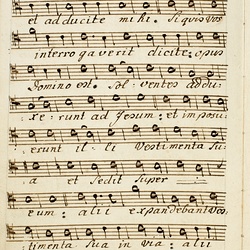 et adducite mihi. Si quis vos
interrogaverit dicite: opus
Domino est. Solventes addu:
xerunt ad Jesum: et imposu
erunt illi Vestimenta su
a et sedit super
eum: alii expandebant Ves
timenta sua in via: alii